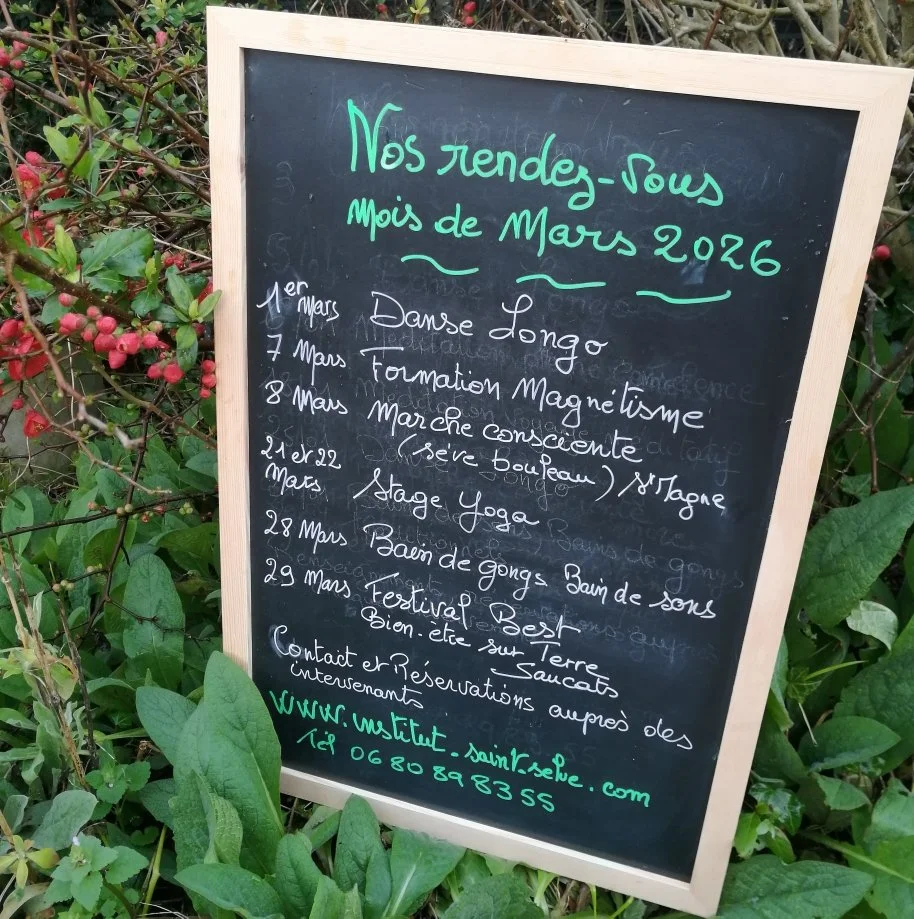 Nos rendez-vous
Mois de Mars 2026
1er Mars Danse Longo
7 Mars Formation Magnétisme
8 Mars Marche consciente
(sève bouleau) St Magne
21 et 22
Mars Stage Yoga
28 Mars Bain de gongs Bain de sons
29 Mars Festival Best
Bien-être sur Terre
Saucats
Contact et Réservations auprès des
intervenants
www.institut-saint-selve.com
Tél 06 80 89 83 55